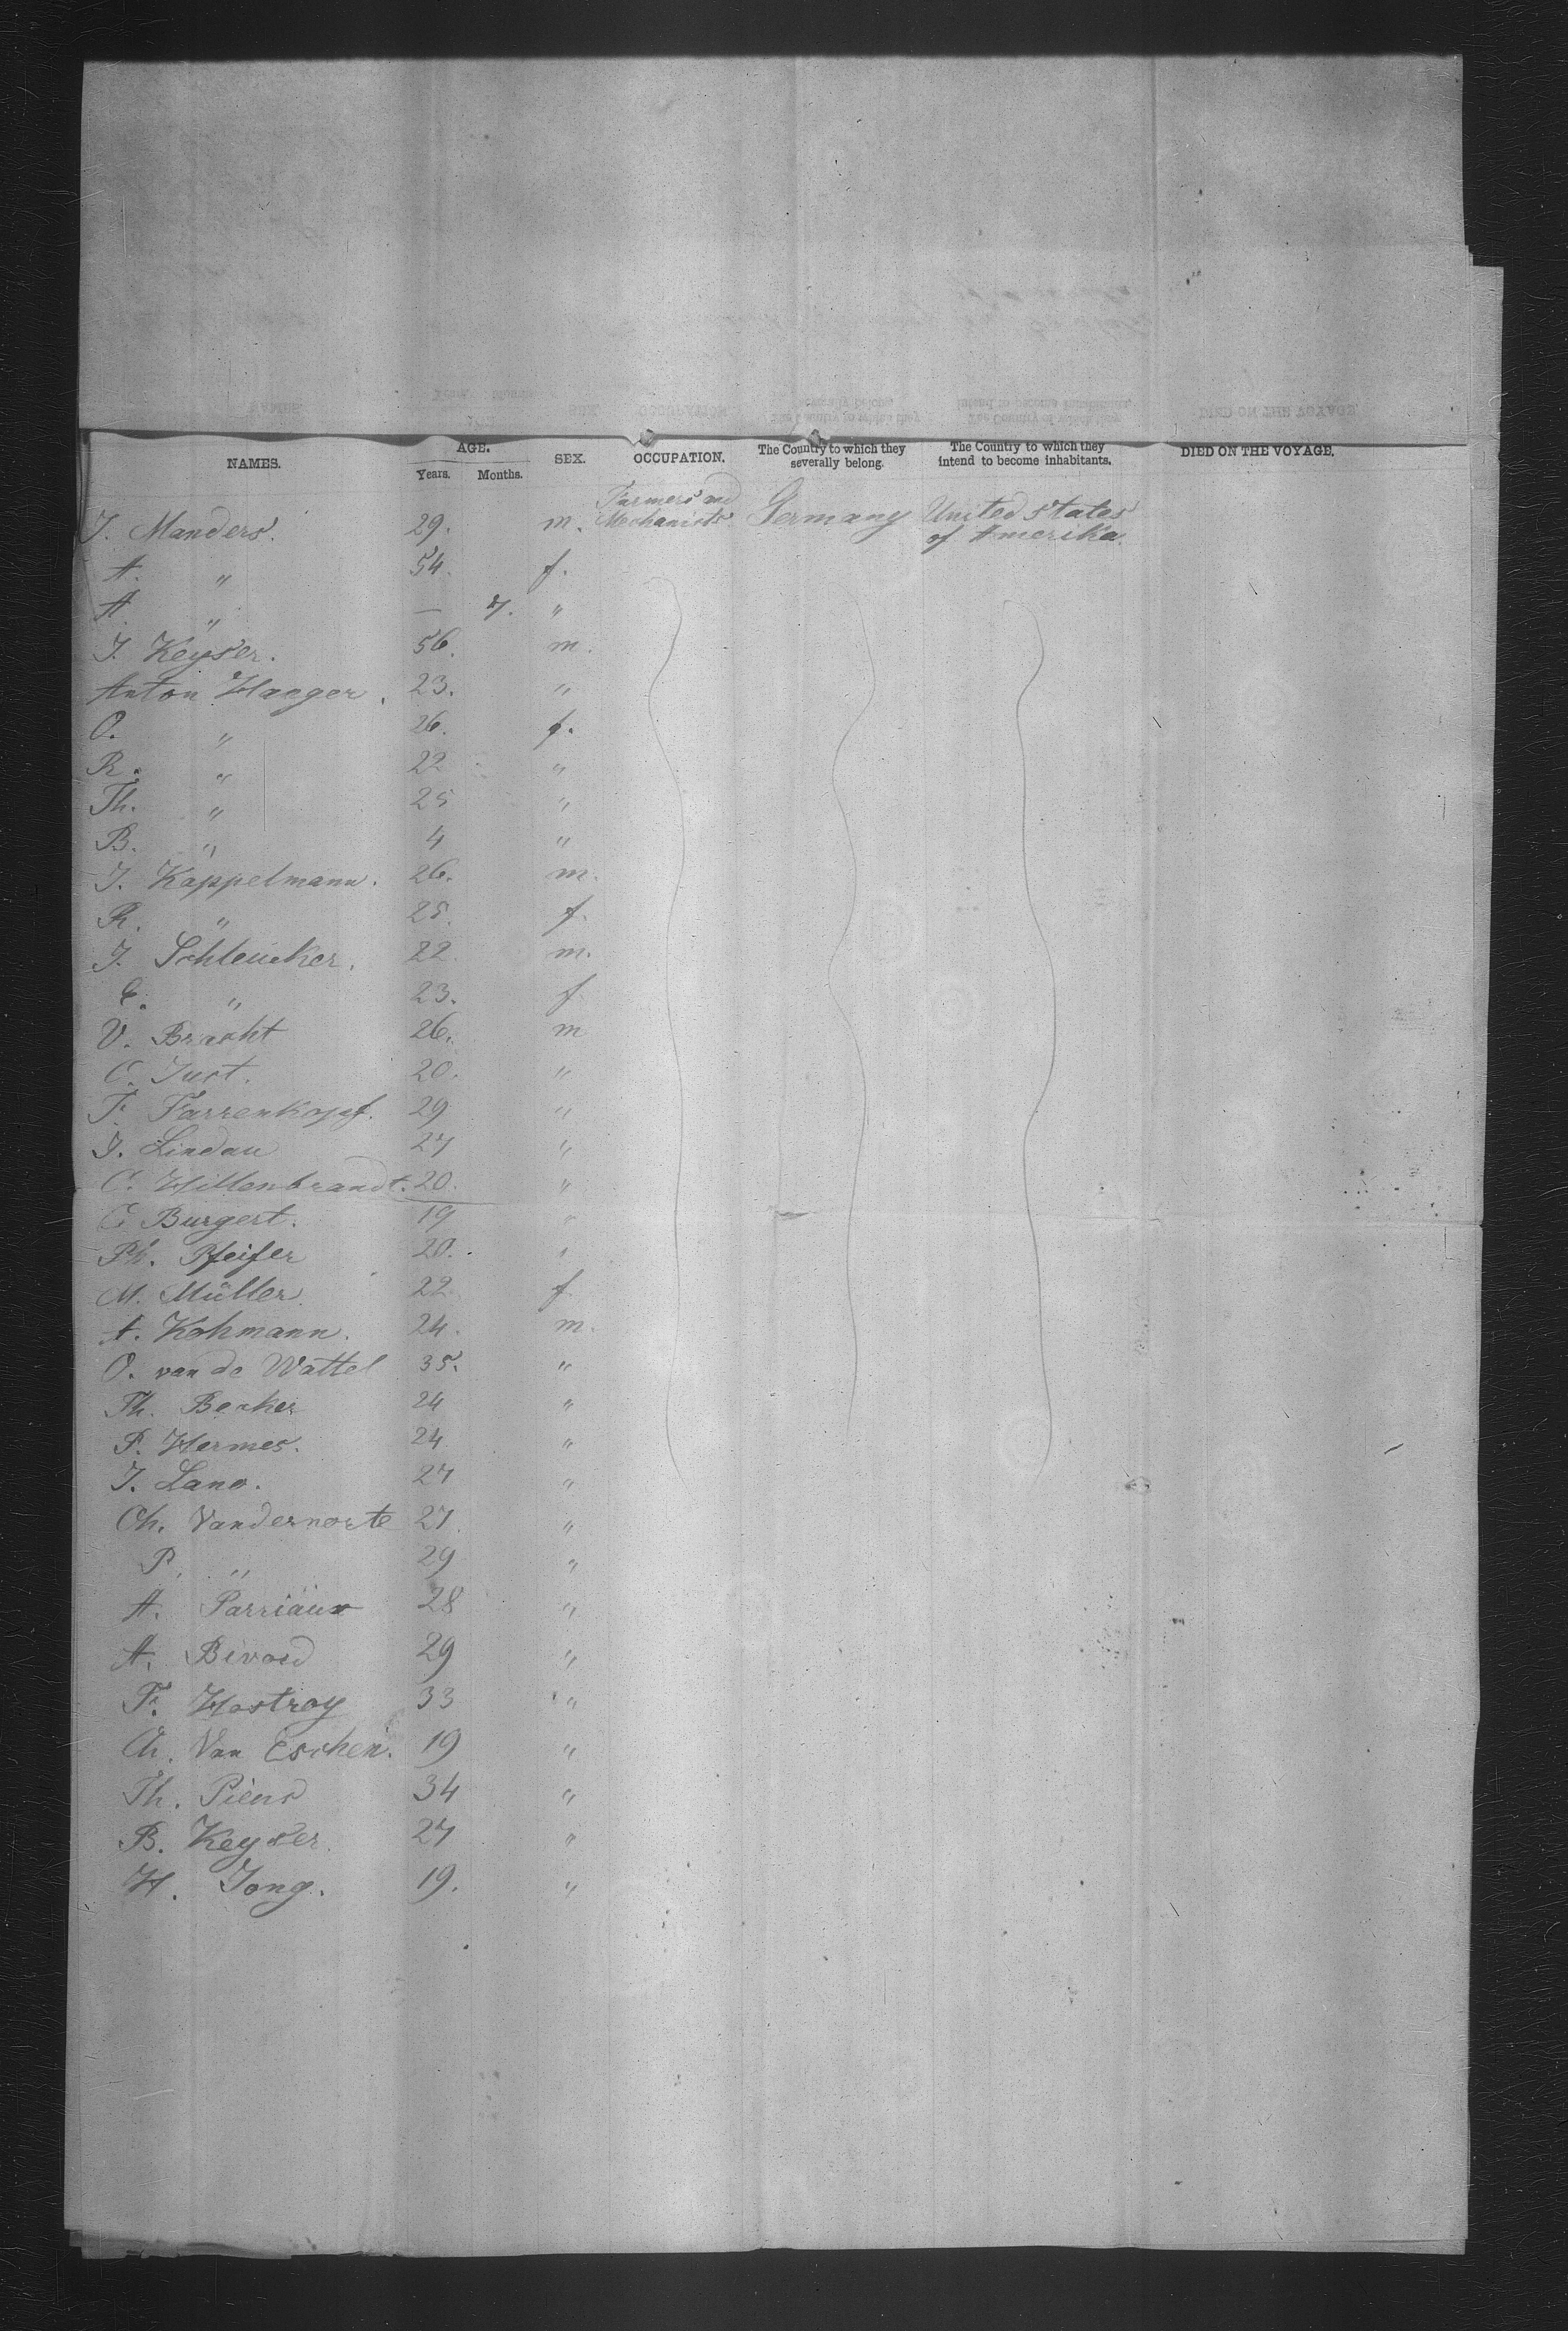 NAMES. AGE. Years. Months. SEX. OCCUPATION. The Country to which they severally belong. The Country to which they intend to become inhabitants. DIED ON THE VOYAGE.
J. Manders. 29. m. Farmers and Mechanicts Germany United States of Amerika.
A. " 54. f.
A " — 7. "
J. Keyser. 56. m.
Anton Haeger. 23. "
O. " 26. f.
R. " 22 "
Th. " 25 "
B. " 4 "
J. Kappelmann. 26. m.
R. " 25. f.
J. Schleucker. 22. m.
E. " 23. f
V. Bracht 26. m
C. Just. 20. "
F. Farrenkopf. 29 "
J. Lindau 27 "
C. Hillenbrandt. 20. "
C Burgert. 19 "
Ph. Pfeifer 20. "
M. Müller 22. f
A. Kohmann. 24. m.
O. van de Wattel 35. "
Th. Becker 24 "
P. Hermes. 24 "
J. 27 "
Ch. Vandernorte 27. "
P. " 29 "
A. Parriaux 28 "
A. 29 "
F. Hostroy 33 "
Van Eschen. 19 "
Th. Piens 34 "
B. Keyser. 27 "
H. Jong. 19. "